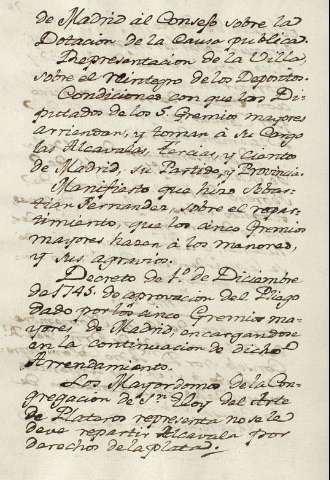 de Madrid al Consejo sobre la
Dotacion de la Causa publica.
Representacion de la Villa,
sobre el reintegro de los Depositos.
Condiciones con que los Di-
putados de los 5. Gremios mayores
arriendan, y toman à su Cargo
las Alcavalas, Tercias, y ciento
de Madrid, su Partido, y Provincia.
Manifiesto que hizo Sebas-
tian Fernandez, sobre el repar-
timiento, que los cinco Gremios
mayores hacen à los menores,
y sus agravios.
Decreto de 1.º de Diciembre
de 1745. de aprovacion del Pliego
dado por los cinco Gremios ma-
yores de Madrid, encargandose
en la continuacion de dicho
Arrendamiento.
Los Mayordomos de la Con-
gregacion de Sn. Eloy del Arte
de Plateros representa no se le
deve repartir Alcavala por
derechos de la plata.